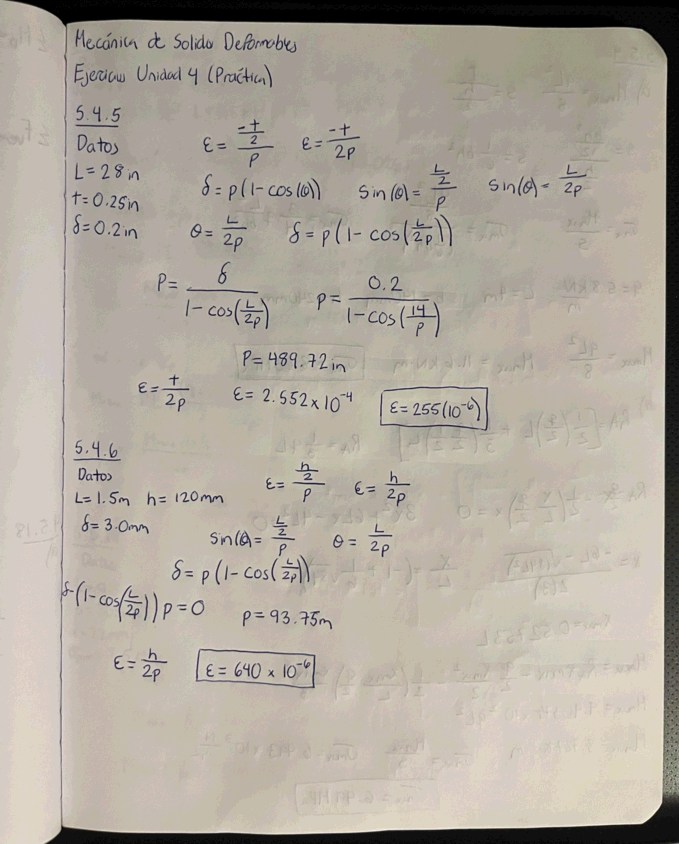 Mecánica de Solidos Deformables
Ejercicios Unidad 4 (Práctica)
5.4.5
Datos
L = 28 in
t = 0.25 in
δ = 0.2 in
ε = (-t/2)/ρ ε = -t/2ρ
δ = ρ(1 - cos(θ)) sin(θ) = (L/2)/ρ sin(θ) = L/2ρ
θ = L/2ρ δ = ρ(1 - cos(L/2ρ))
ρ = δ/(1 - cos(L/2ρ)) ρ = 0.2/(1 - cos(14/ρ))
ρ = 489.72 in
ε = t/2ρ ε = 2.552 x 10^-4 ε = 255(10^-6)
5.4.6
Datos
L = 1.5m h = 120mm
δ = 3.0mm
ε = (h/2)/ρ ε = h/2ρ
sin(θ) = (L/2)/ρ θ = L/2ρ
δ = ρ(1 - cos(L/2ρ))
δ - (1 - cos(L/2ρ))ρ = 0 ρ = 93.75m
ε = h/2ρ ε = 640 x 10^-6